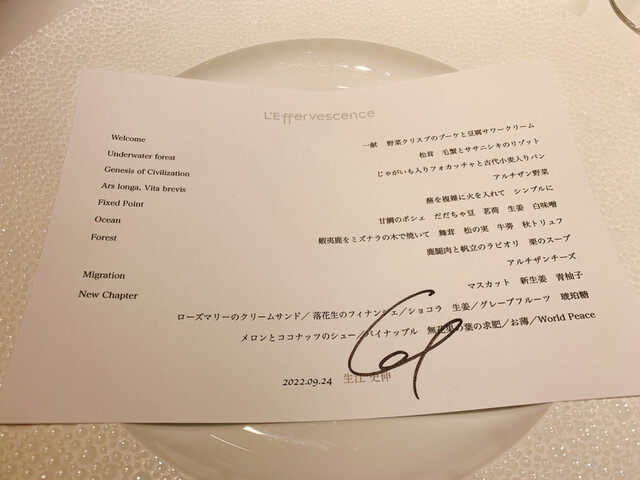 L'Effervescence
Welcome 一献 野菜クリスプのブーケと豆腐サワークリーム
Underwater forest 松茸 毛蟹とササニシキのリゾット
Genesis of Civilization じゃがいも入りフォカッチャと古代小麦入りパン
Ars longa, Vita brevis アルチザン野菜
Fixed Point 蕪を複雑に火を入れて シンプルに
Ocean 甘鯛のポシェ だだちゃ豆 茗荷 生姜 白味噌
Forest 蝦夷鹿をミズナラの木で焼いて 舞茸 松の実 牛蒡 秋トリュフ
鹿腿肉と帆立のラビオリ 栗のスープ
Migration アルチザンチーズ
New Chapter マスカット 新生姜 青柚子
ローズマリーのクリームサンド／落花生のフィナンシェ／ショコラ 生姜／グレープフルーツ 琥珀糖
メロンとココナッツのシュー／パイナップル 無花果の葉の求肥／お薄／World Peace
2022.09.24 生江 史伸